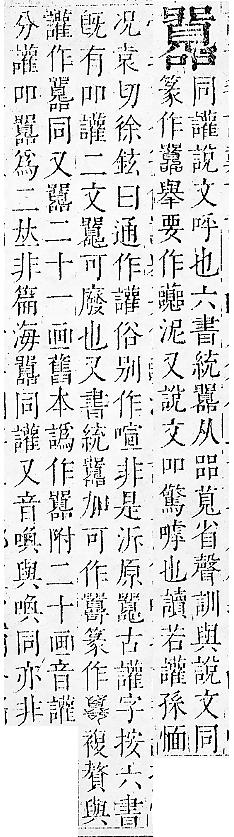 同讙說文呼也六書統从㗊莧省聲訓與說文同
篆作舉要作泥又說文吅驚嘑也讀若讙孫愐
况袁切徐鉉曰通作讙俗别作喧非是泝原古讙字按六書
旣有吅讙二文可廢也又書統加可作篆作複贅與
讙作同又二十一画舊本譌作附二十画音讙
分讙吅爲二𠀤非篇海同讙又音喚與喚同亦非